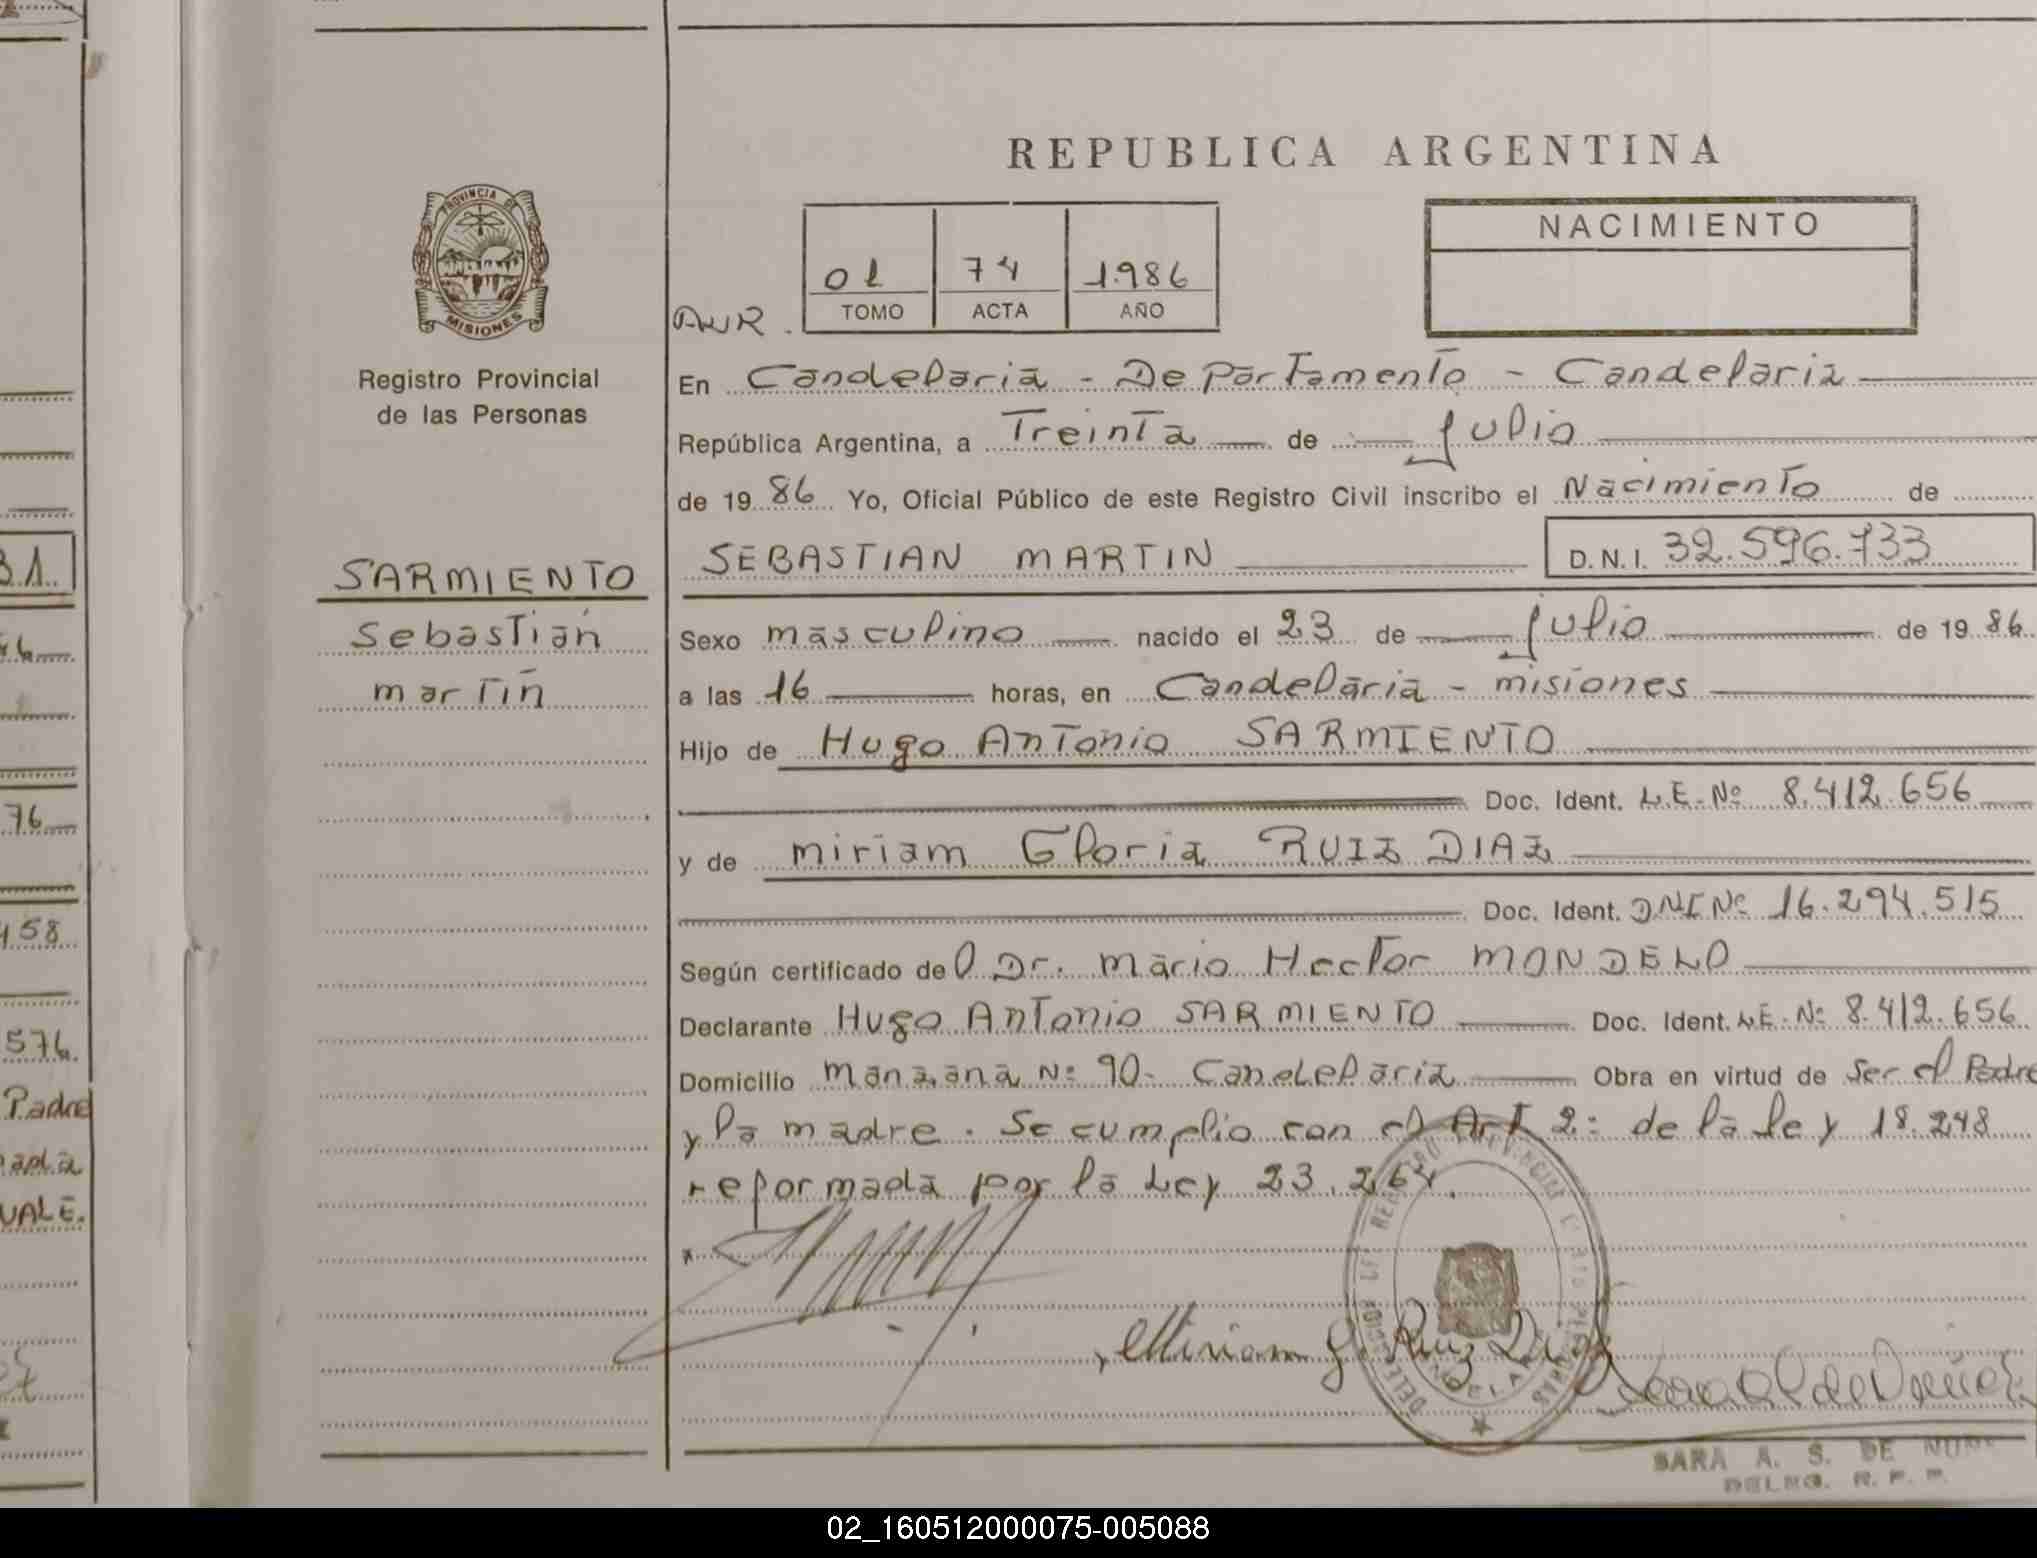 REPUBLICA ARGENTINA
PROVINCIA DE
MISIONES
Registro Provincial
de las Personas
NACIMIENTO
01 74 1.986
TOMO ACTA AÑO
En Candelaria - Departamento - Candelaria
República Argentina, a Treinta de Julio
de 19 86 Yo, Oficial Público de este Registro Civil inscribo el Nacimiento de
SEBASTIAN MARTIN D.N.I. 32.596.733
SARMIENTO
Sebastián
martín
Sexo masculino nacido el 23 de Julio de 19 86
a las 16 horas, en Candelaria - misiones
Hijo de Hugo Antonio SARMIENTO
Doc. Ident. L.E. Nº 8.412.656
y de miriam Gloria RUIZ DIAZ
Doc. Ident. DNI Nº 16.294.515
Según certificado del Dr. Mario Hector MONDELO
Declarante Hugo Antonio SARMIENTO Doc. Ident. L.E. Nº 8.412.656
Domicilio manzana Nº 90- Candelaria Obra en virtud de Ser el Padre
y la madre. Se cumplio con el Art 2: de la ley 18.248
reformada por la Ley 23.264.
Miriam G. Ruiz Diaz
SARA A. S. DE
DELEG. R. P. P.
31.
76
458
576.
Padre
UALE.
02_160512000075-005088